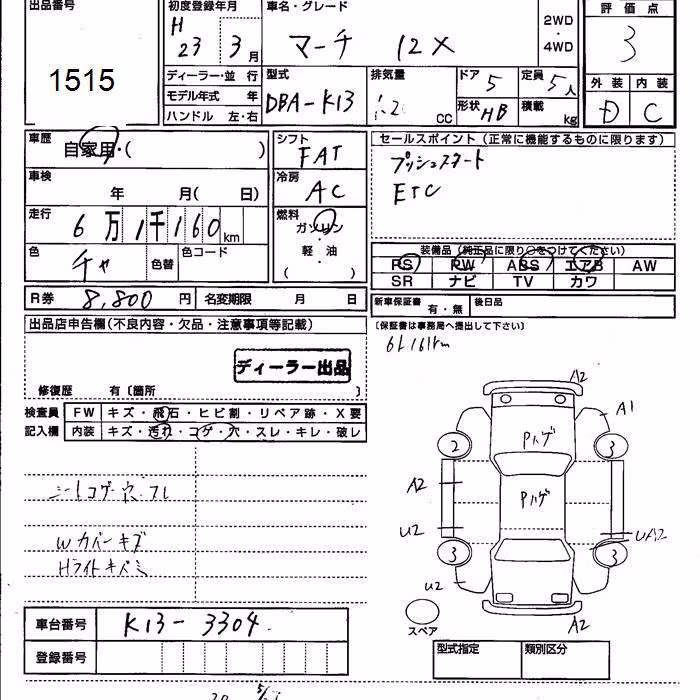 出品番号 初度登録年月 車名・グレード 2WD・4WD 評価点
1515 H 23 3月 マーチ 12X 3
ディーラー・並行 型式 排気量 ドア 5 定員 5人 外装 内装
モデル年式 年 DBA-K13 1.2 CC 形状 HB 積載 kg D C
ハンドル 左・右
車歴 自家用・( ) シフト FAT セールスポイント (正常に機能するものに限ります)
プッシュスタート
車検 年 月(日) 冷房 AC ETC
走行 6万1千160km 燃料 ガソリン・軽油( )
色 チャ 色替 色コード 装備品 (純正品に限り○をつけてください)
PS PW ABS エアB AW
SR ナビ TV カワ
R券 8,800円 名変期限 月 日 新車保証書 有・無 後日品
出品店申告欄(不良内容・欠品・注意事項等記載) (保証書は事務局へ提出して下さい)
61161km
ディーラー出品
修復歴 有〔箇所 〕
検査員 FW キズ・飛石・ヒビ割・リペア跡・X要
記入欄 内装 キズ・汚れ・コゲ・穴・スレ・キレ・破レ
A2
A1
2 Pハゲ 3
A2 Pハゲ
U2 UA2
3 3
U2
A2
スペア
シートコゲ穴スレ
Wカバーキズ
Hライトキバミ
車台番号 K13-3304
登録番号 型式指定 類別区分